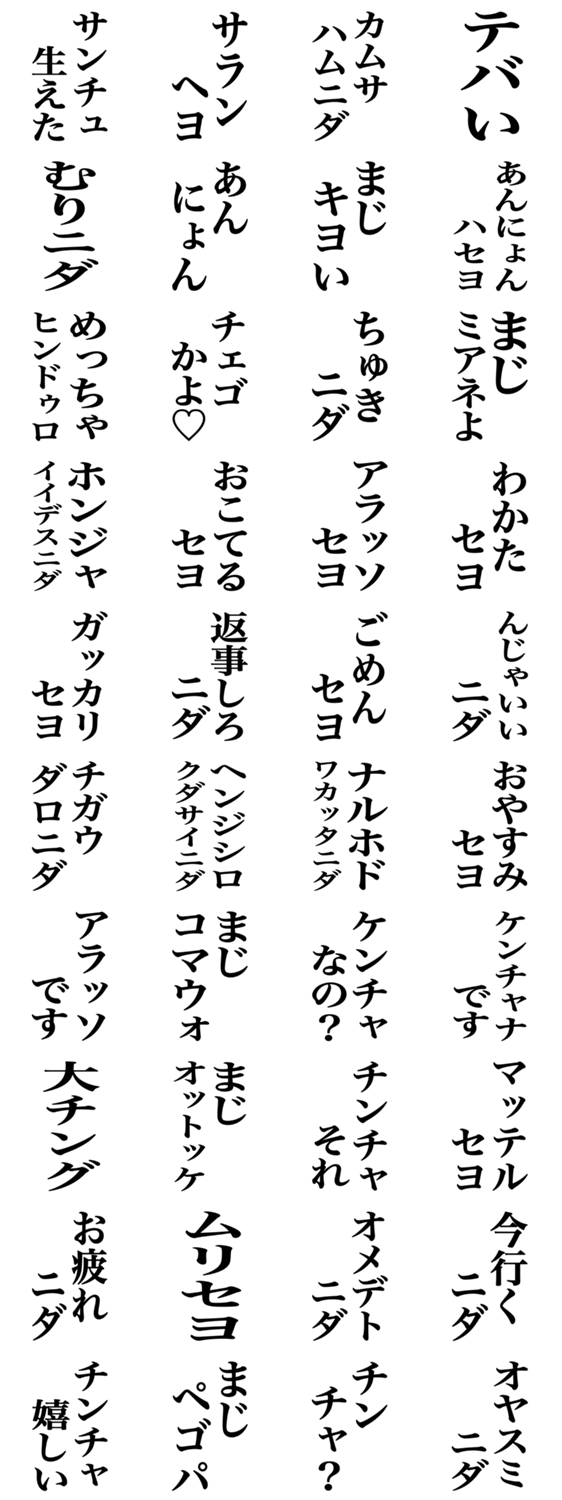 テバい
カムサ
ハムニダ
サラン
ヘヨ
サンチュ
生えた
あんにょん
ハセヨ
まじ
キヨい
あん
にょん
むりニダ
まじ
ミアネよ
ちゅき
ニダ
チェゴ
かよ♡
めっちゃ
ヒンドゥロ
わかた
セヨ
アラッソ
セヨ
おこてる
セヨ
ホンジャ
イイデスニダ
んじゃいい
ニダ
ごめん
セヨ
返事しろ
ニダ
ガッカリ
セヨ
おやすみ
セヨ
ナルホド
ワカッタニダ
ヘンジシロ
クダサイニダ
チガウ
ダロニダ
ケンチャナ
です
ケンチャ
なの?
まじ
コマウォ
アラッソ
です
マッテル
セヨ
チンチャ
それ
まじ
オットッケ
大チング
今行く
ニダ
オメデト
ニダ
ムリセヨ
お疲れ
ニダ
オヤスミ
ニダ
チン
チャ?
まじ
ペゴパ
チンチャ
嬉しい